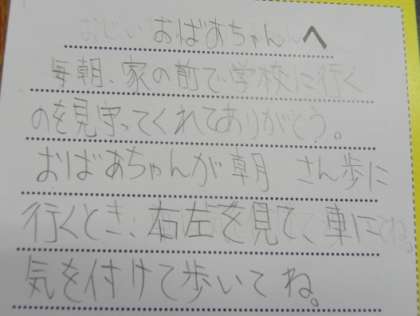 おばあちゃんへ
毎朝、家の前で学校に行く
のを見守ってくれてありがとう。
おばあちゃんが朝 さん歩に
行くとき、右左を見て、車に
気を付けて歩いてね。